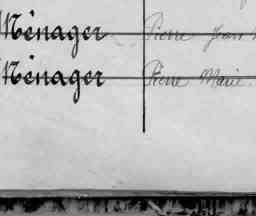 Ménager Pierre Jean
Ménager Pierre Marie